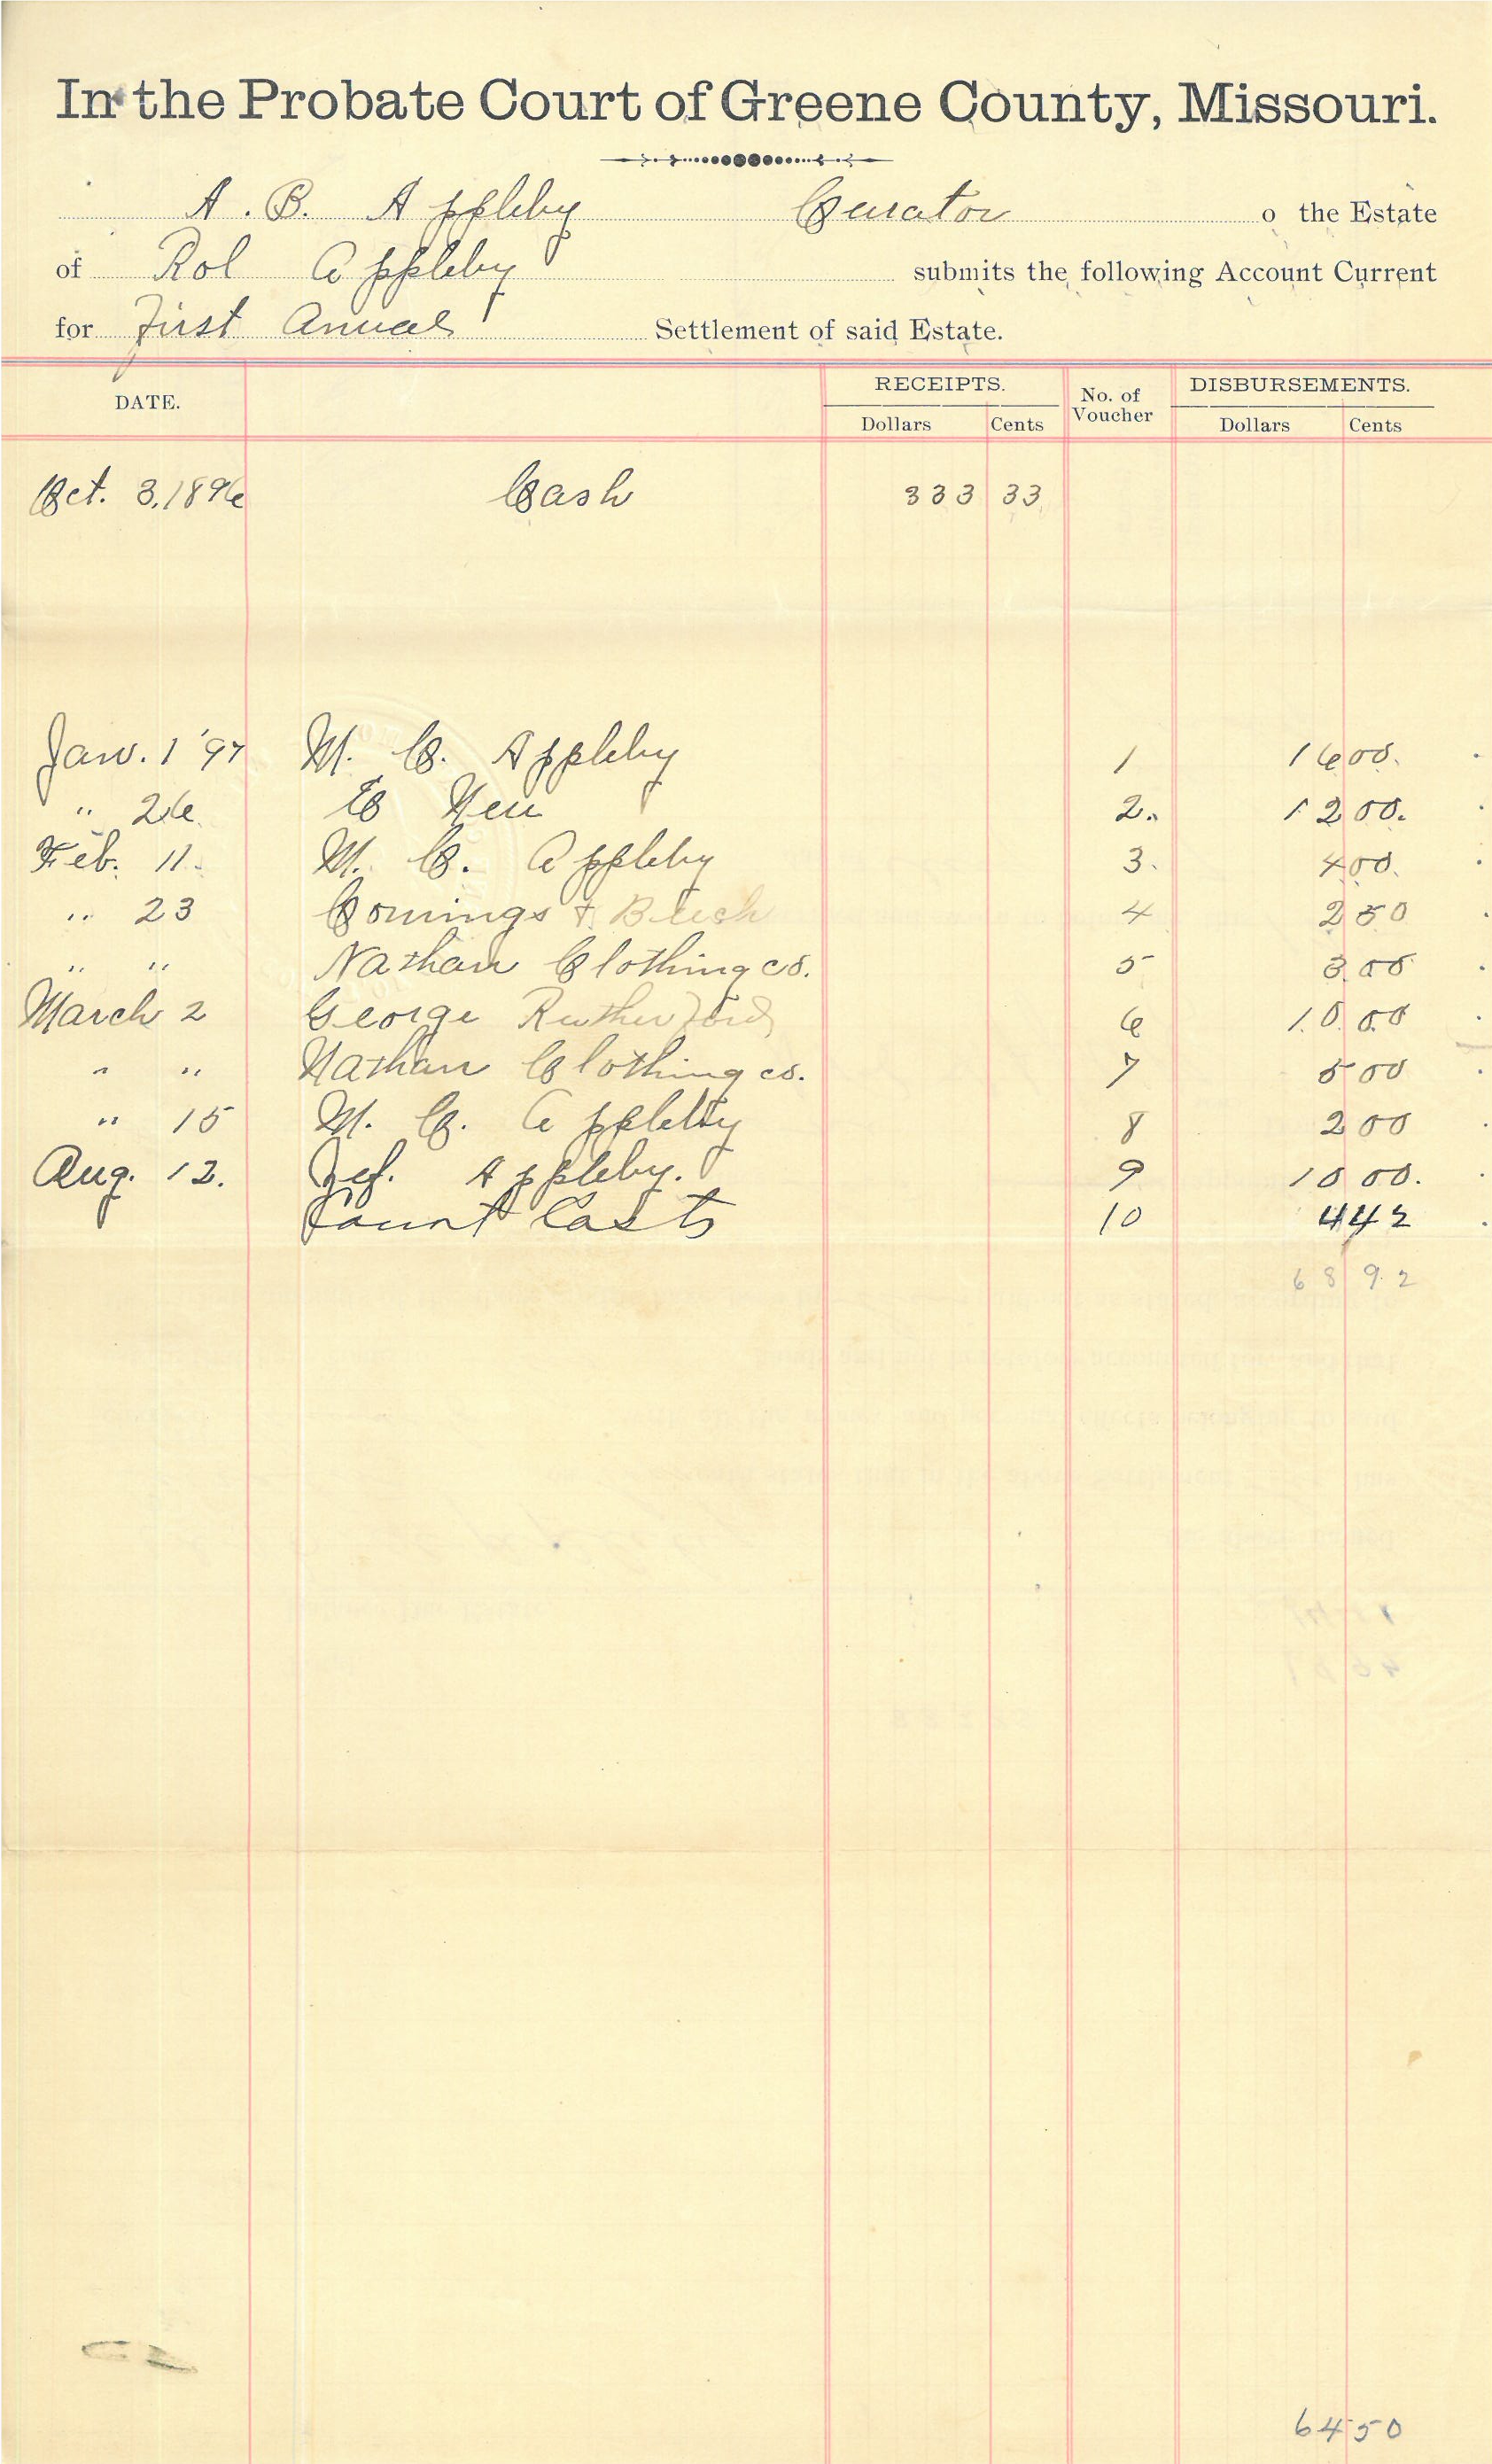 In the Probate Court of Greene County, Missouri.
A. B. Appleby Curator o the Estate
of Rol Appleby submits the following Account Current
for First Annual Settlement of said Estate.
DATE. RECEIPTS. No. of Voucher DISBURSEMENTS.
Dollars Cents Dollars Cents
Oct. 3, 1896 Cash 333 33
Jan. 1 '97 M. C. Appleby 1 16 00.
" 26. 2. 12 00.
Feb. 11. M. C. Appleby 3. 4 00.
" 23 Comings & Bush 4 2 50
" " Nathan Clothing co. 5 3 00
March 2 George Rutherford 6 10 00
" " Nathan Clothing co. 7 5 00
" 15 M. C. Appleby 8 2 00
Aug. 12. Jef. Appleby. 9 10 00.
Court Costs 10 4 42
68 92
64 50